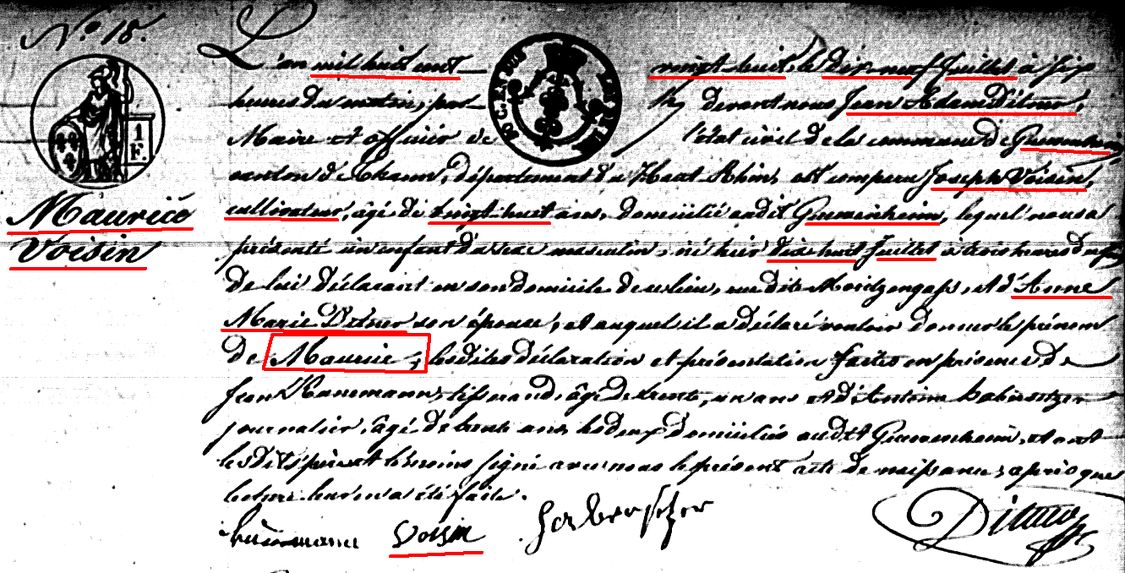 N.o 18.
L'an mil huit cent vingt huit le dix neuf Juillet à six
heures du matin, par devant nous Jean Adam Ditner,
Maire et officier de l'état civil de la commune de Guewenheim,
canton de Thann, département du Haut Rhin, est comparu Joseph Voisin,
cultivateur, âgé de vingt huit ans, domicilié audit Guewenheim, lequel nous a
présenté un enfant du sexe masculin, né hier dix huit Juillet à trois heures
de lui déclarant en son domicile de ce lieu, rue dite et d'Anne
Marie Ditner son épouse, et auquel il a déclaré vouloir donner le prénom
de Maurice; lesdites déclaration et présentation faites en présence de
Jean tisserand, âgé de trente, un ans et d'Antoine
journalier, âgé de trente ans, les deux domiciliés audit Guewenheim, et ont
lesdits père et témoins signé avec nous le présent acte de naissance, après que
lecture leur en a été faite.
Maurice
Voisin
1
F.
Voisin